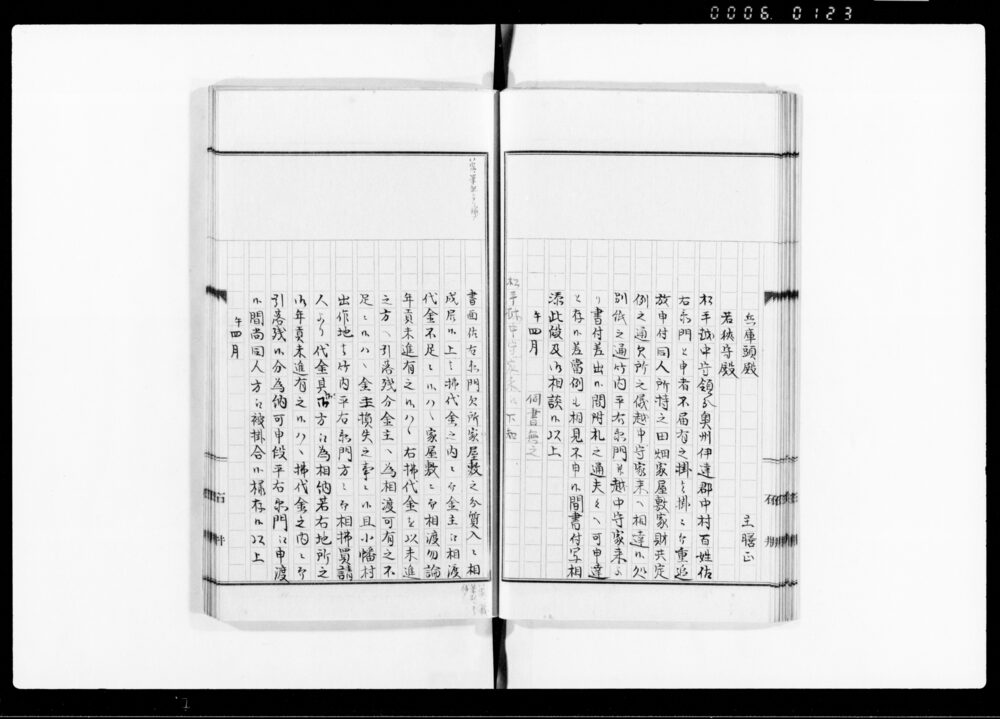 0006 0123
兵庫頭殿
若狭守殿
主膳正
松平越中守領分奥州伊達郡中村百姓佐
右衛門と申者不届有之掛り掛ニ而重追
放申付同人所持之田畑家屋敷家財共定
例之通欠所之儀越中守家来へ相達候処
別紙之通竹内平右衛門并越中守家来ゟ
書付差出候間附札之通夫々へ可申達
と存候差当例も相見不申候間書付写相
添此段及御相談候以上
午四月
伺書無之
松平越中守家来江下知
書面佐右衛門欠所家屋敷之分質入ニ相
成居候上ハ払代金之内ニ而金主江相渡
代金不足ニ候ハヽ家屋敷ニ而相渡勿論
年貢未進有之候ハヽ右払代金を以未進
之方へ引落残分金主へ為相渡可有之不
足ニ候ハヽ金主損失之事ニ候且小幡村
出作地も竹内平右衛門方ニ而相払買請
人より代金其御方江為相納若右地所之
御年貢未進有之候ハヽ払代金之内ニ而
引落残候分為納可申段平右衛門江申渡
候間尚同人方江被掛合候様存候以上
午四月